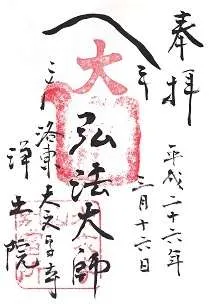 奉拝
平成二十六年
三月十六日
大
弘法大師
洛東大文字寺
浄土院